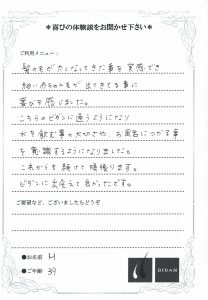 ＊喜びの体験談をお聞かせ下さい＊
ご利用メニュー：
髪の毛が太くなってきた事を実感でき
細い赤ちゃん毛が出てきてる事に
喜びを感じました。
こちらのビダンに通うようになり
水を飲む事の大切さや、お風呂につかる事
を意識するようになりました。
これからも続けて頑張ります。
ビダンに出会えて良かったです。
ご要望など、ございましたらどうぞ
●お名前 M
●ご年齢 39
BIDAN